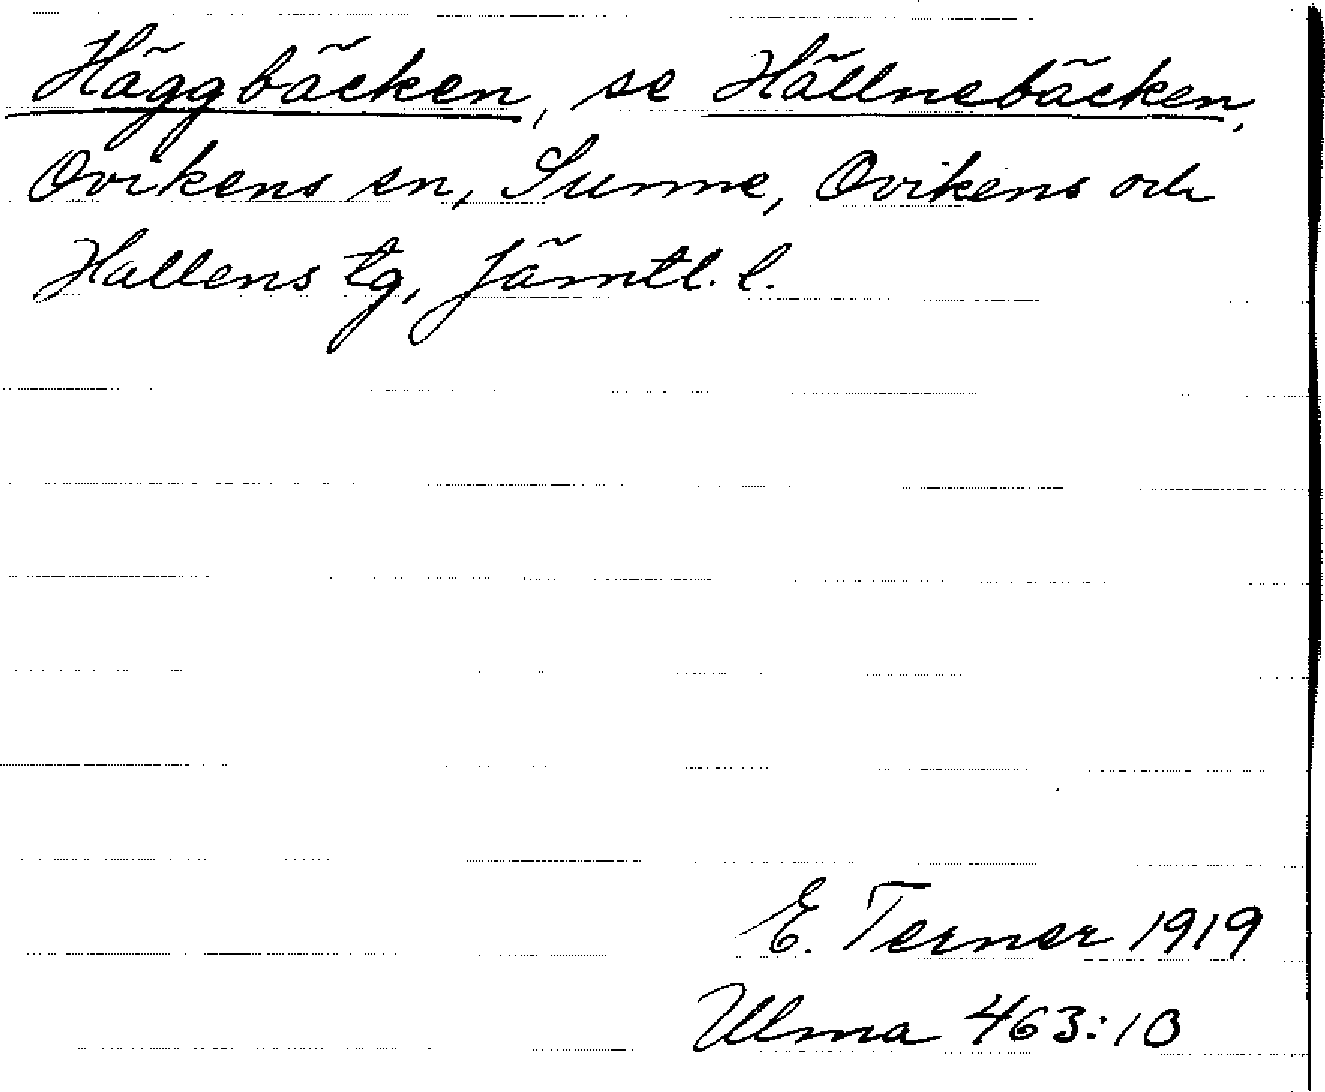 Häggbäcken, se Hällnebäcken,
Ovikens sn, Sunne, Ovikens och
Hallens tg, Jämtl. l.
E. Terner 1919
Ulma 463:10